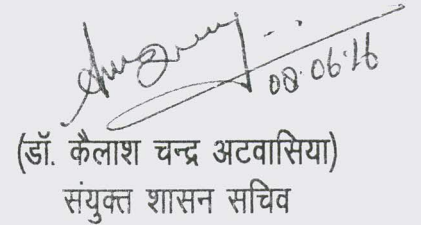 08.06.16
(डॉ. कैलाश चन्द्र अटवासिया)
संयुक्त शासन सचिव